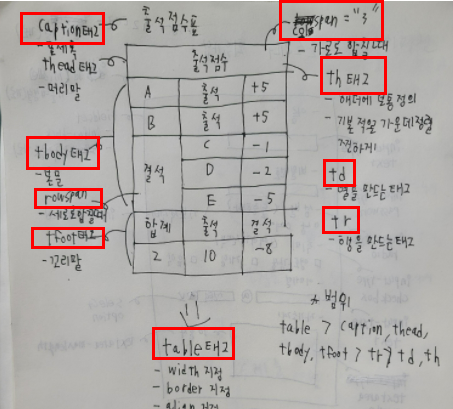 출석 점수표
caption태그
- 표제목
thead태그
- 머리말
tbody태그
- 본문
rowspan
- 세로로 합칠때
tfoot태그
- 꼬리말
출석점수
A 출석 +5
B 출석 +5
결석 C -1
D -2
E -5
합계 출석 결석
2 10 -8
colspan = "3"
- 가로로 합칠때
th태그
- 헤더에 보통 정의
- 기본적인 가운데정렬
진하게
td
- 열을 만드는 태그
tr
- 행을 만드는 태그
table태그
- width 지정
- border 지정
- align 지정
* 범위
table > caption, thead,
tbody, tfoot > tr > td, th